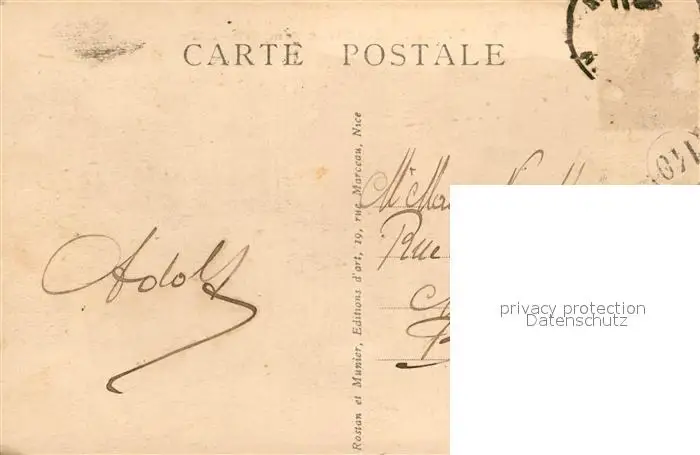 CARTE POSTALE
Adolf
Rostan et Munier, Editions d'art, 19, rue Marceau, Nice
Rue
privacy protection
Datenschutz